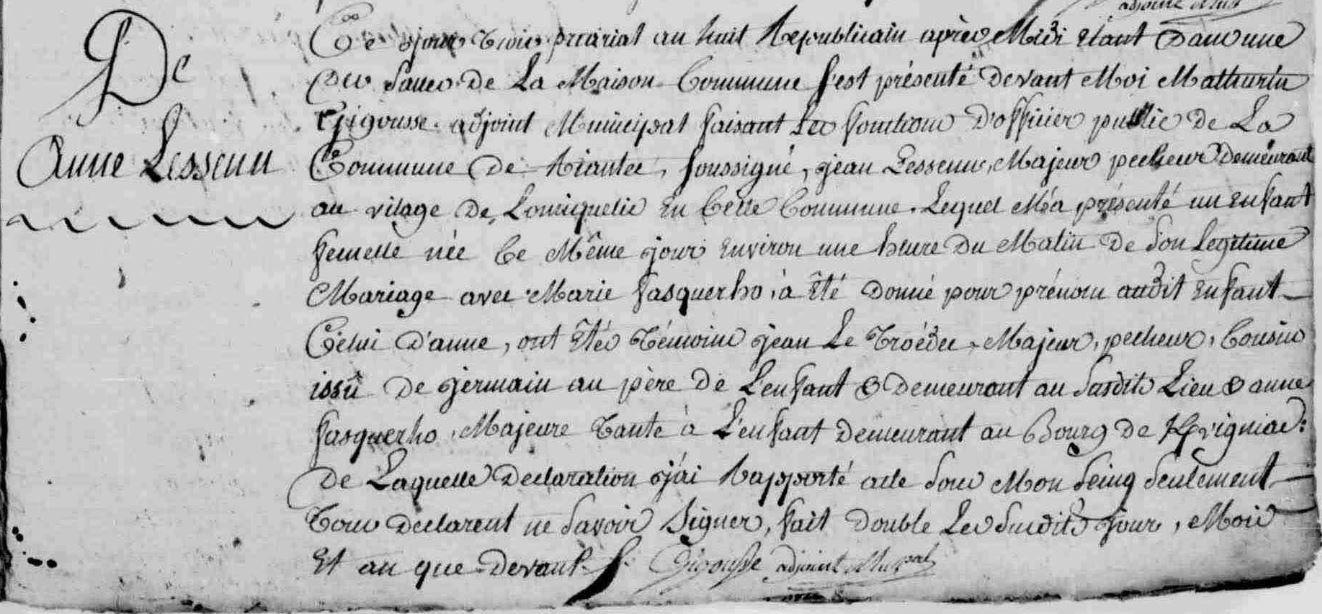 adjoint M
De
Anne Lessenn
Ce jour trois prérial an huit Republicain après Midi étant dans une
des Sales de La Maison Commune s'est présenté devant Moi Mathurin
Gigousse adjoint Municipal faisant les fonctions D'officier public de La
Commune de Riantec, soussigné, jean Lessenn, Majeur pecheur Demeurant
au vilage de Lomiquelic en Cette Commune. Lequel M'a présenté un Enfant
femelle née Ce Même jour Environ une heure Du Matin de Son Legitime
Mariage avec Marie fasquerho, à Été Donné pour prénom audit Enfant
Celui D'anne, ont Étés Témoins jean Le Troédec, Majeur, pecheur, Cousin
issû De Germain au père de L'enfant & Demeurant au Susdit Lieu & anne
fasquerho, Majeure Tante à L'enfant Demeurant au Bourg de
De Laquelle Declaration j'ai Rapporté acte sous Mon Seing Seulement
Tous Declarent ne Savoir Signer, fait Double Les Susdits jour, Mois
Et an que Devant
Gigousse adjoint Mupal